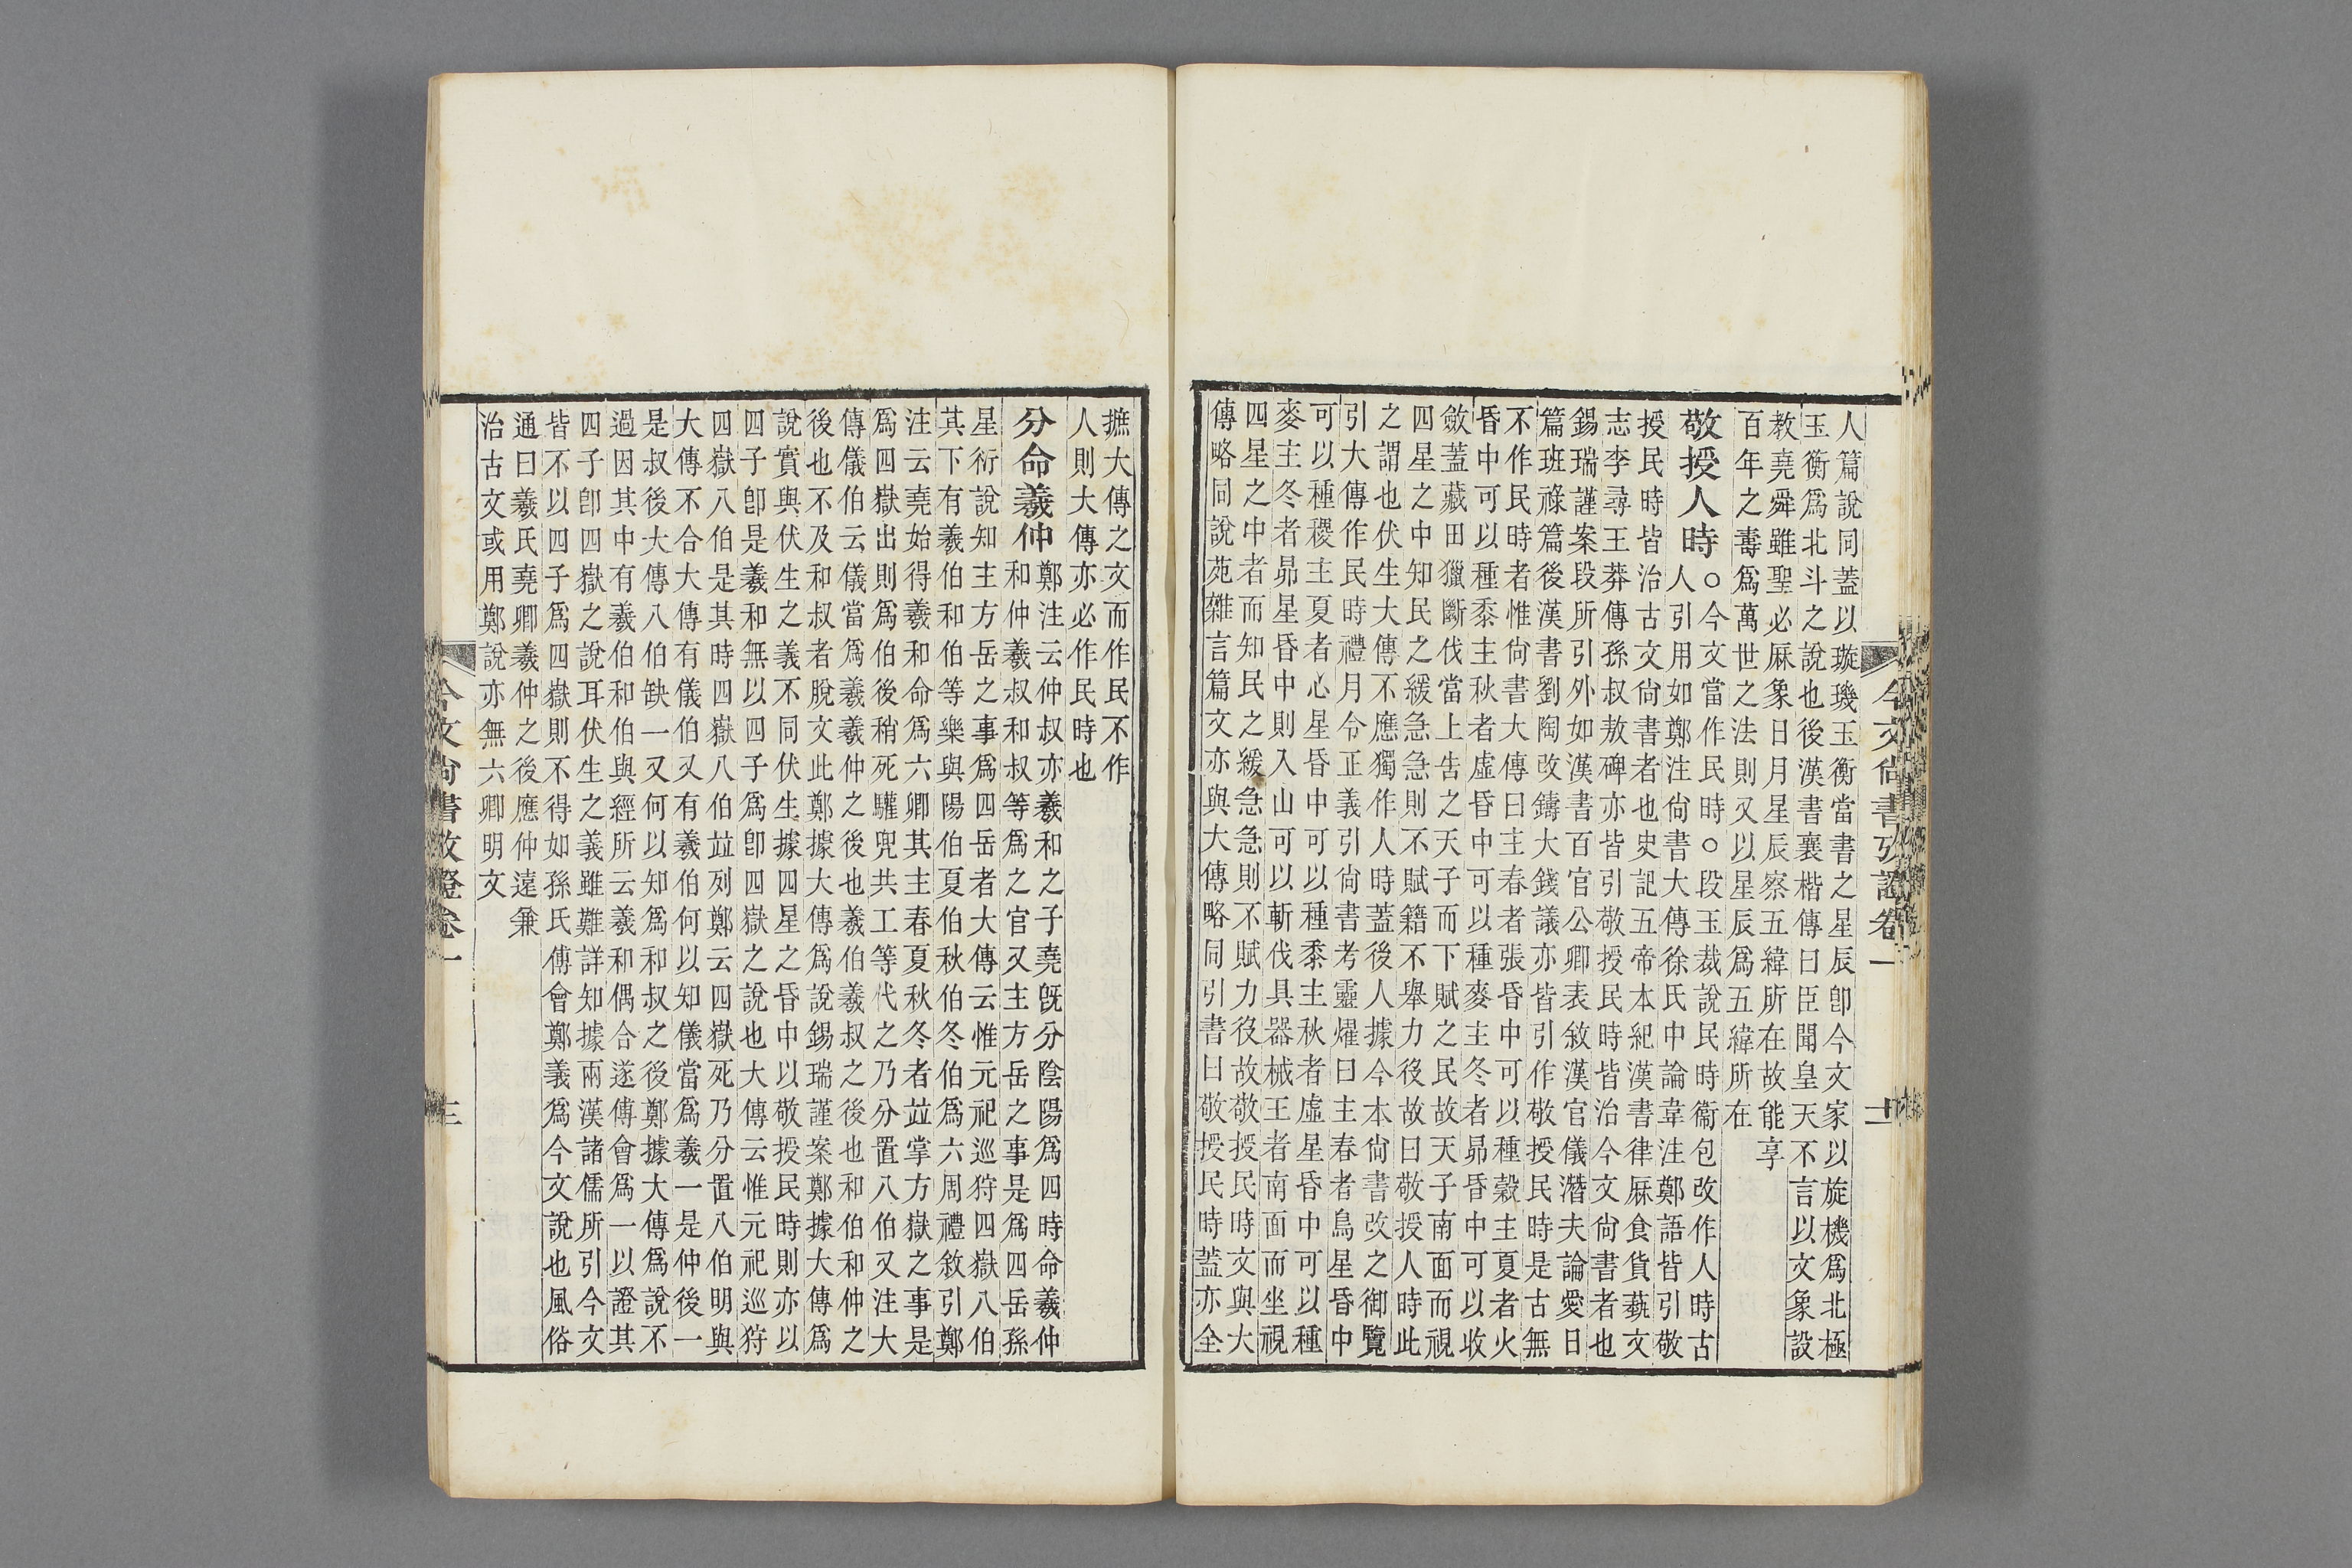 今文尙書攷證卷一
人篇說同蓋以璇璣玉衡當書之星辰卽今文家以旋機爲北極
玉衡爲北斗之說也後漢書襄楷傳曰臣聞皇天不言以文象設
教堯舜雖聖必厤象日月星辰察五緯所在故能享
百年之壽爲萬世之法則又以星辰爲五緯所在
敬授人時○今文當作民時○段玉裁說民時衞包改作人時古
人引用如鄭注尙書大傳徐氏中論韋注鄭語皆引敬
授民時皆治古文尙書者也史記五帝本紀漢書律厤食貨藝文
志李尋王莽傳孫叔敖碑亦皆引敬授民時皆治今文尙書者也
錫瑞謹案段所引外如漢書百官公卿表敘漢官儀潛夫論愛日
篇班祿篇後漢書劉陶改鑄大錢議亦皆引作敬授民時是古無
不作民時者惟尙書大傳曰主春者張昏中可以種穀主夏者火
昏中可以種黍主秋者虛昏中可以種麥主冬者昴昏中可以收
斂蓋藏田獵斷伐當上告之天子而下賦之民故天子南面而視
四星之中知民之緩急急則不賦籍不舉力役故曰敬授人時此
之謂也伏生大傳不應獨作人時蓋後人據今本尙書改之御覽
引大傳作民時禮月令正義引尙書考靈燿曰主春者鳥星昏中
可以種稷主夏者心星昏中可以種黍主秋者虛星昏中可以種
麥主冬者昴星昏中則入山可以斬伐具器械王者南面而坐視
四星之中者而知民之緩急急則不賦力役故敬授民時文與大
傳略同說苑雜言篇文亦與大傳略同引書曰敬授民時蓋亦全
摭大傳之文而作民不作
人則大傳亦必作民時也
分命羲仲鄭注云仲叔亦羲和之子堯旣分陰陽爲四時命羲仲
和仲羲叔和叔等爲之官又主方岳之事是爲四岳孫
星衍說知主方岳之事爲四岳者大傳云惟元祀巡狩四嶽八伯
其下有羲伯和伯等樂與陽伯夏伯秋伯冬伯爲六周禮敘引鄭
注云堯始得羲和命爲六卿其主春夏秋冬者竝掌方嶽之事是
爲四嶽出則爲伯後稍死驩兜共工等代之乃分置八伯又注大
傳儀伯云儀當爲羲羲仲之後也羲伯羲叔之後也和伯和仲之
後也不及和叔者脫文此鄭據大傳爲說錫瑞謹案鄭據大傳爲
說實與伏生之義不同伏生據四星之昏中以敬授民時則亦以
四子卽是羲和無以四子爲卽四嶽之說也大傳云惟元祀巡狩
四嶽八伯是其時四嶽八伯竝列鄭云四嶽死乃分置八伯明與
大傳不合大傳有儀伯又有羲伯何以知儀當爲羲一是仲後一
是叔後大傳八伯缺一又何以知爲和叔之後鄭據大傳爲說不
過因其中有羲伯和伯與經所云羲和偶合遂傅會爲一以證其
四子卽四嶽之說耳伏生之義雖難詳知據兩漢諸儒所引今文
皆不以四子爲四嶽則不得如孫氏傅會鄭義爲今文說也風俗
通曰羲氏堯卿羲仲之後應仲遠兼
治古文或用鄭說亦無六卿明文
今文尙書攷證卷一